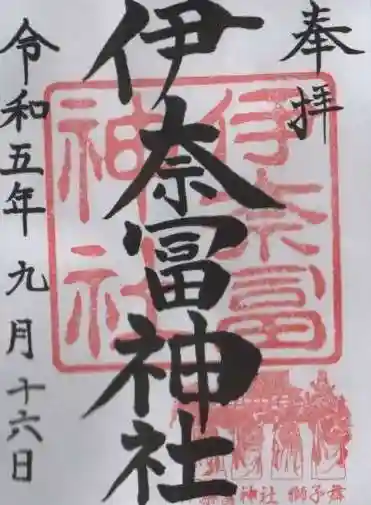 奉拝
伊奈冨神社
令和五年九月十六日
伊奈冨
神社
神社 獅子舞